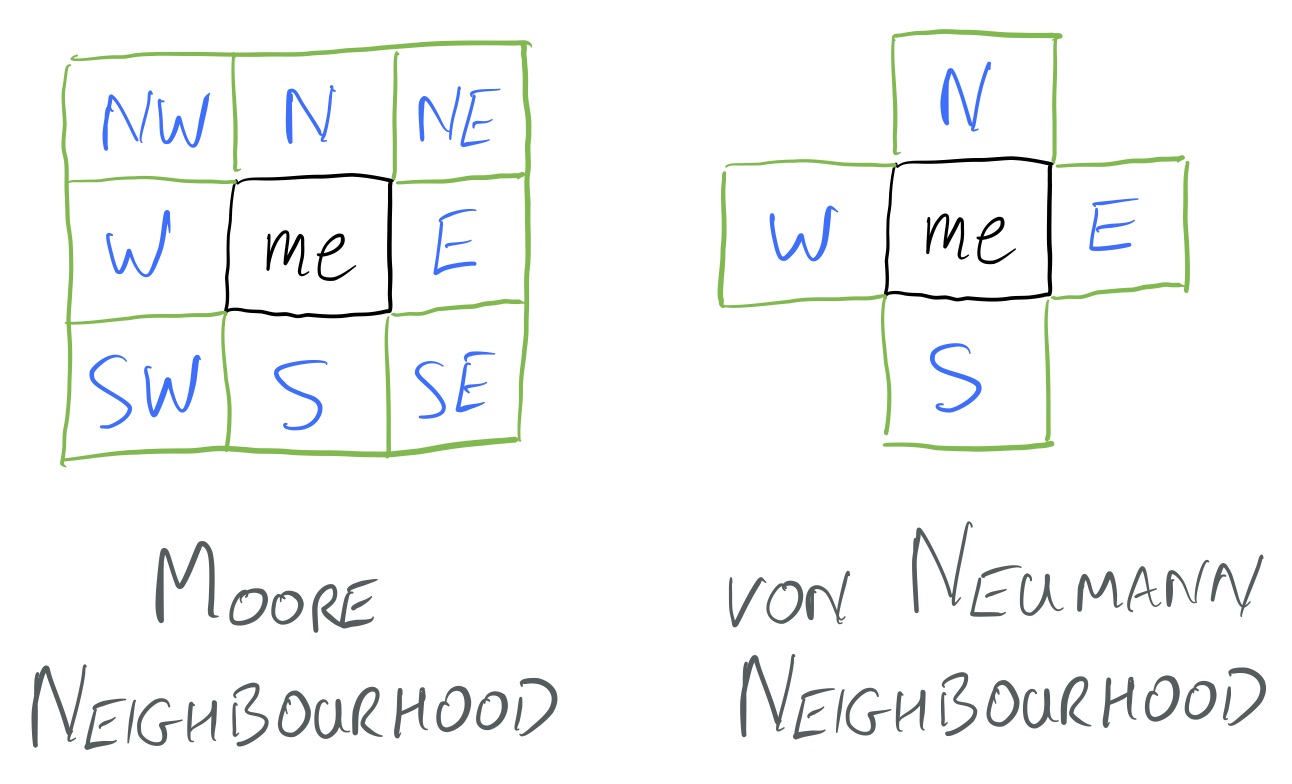 NW N NE
W me E
SW S SE
MOORE
NEIGHBOURHOOD
N
W me E
S
VON NEUMANN
NEIGHBOURHOOD